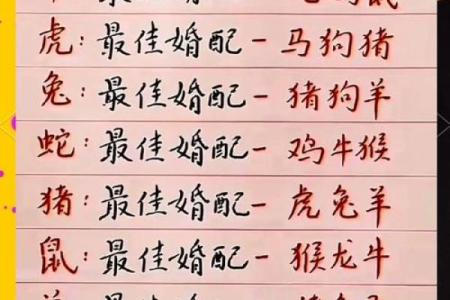 虎:最佳婚配-马狗猪
兔:最佳婚配-猪狗羊
蛇:最佳婚配-鸡牛猴
猪:最佳婚配-虎兔羊
鼠:最佳婚配-猴龙牛
最佳婚配-